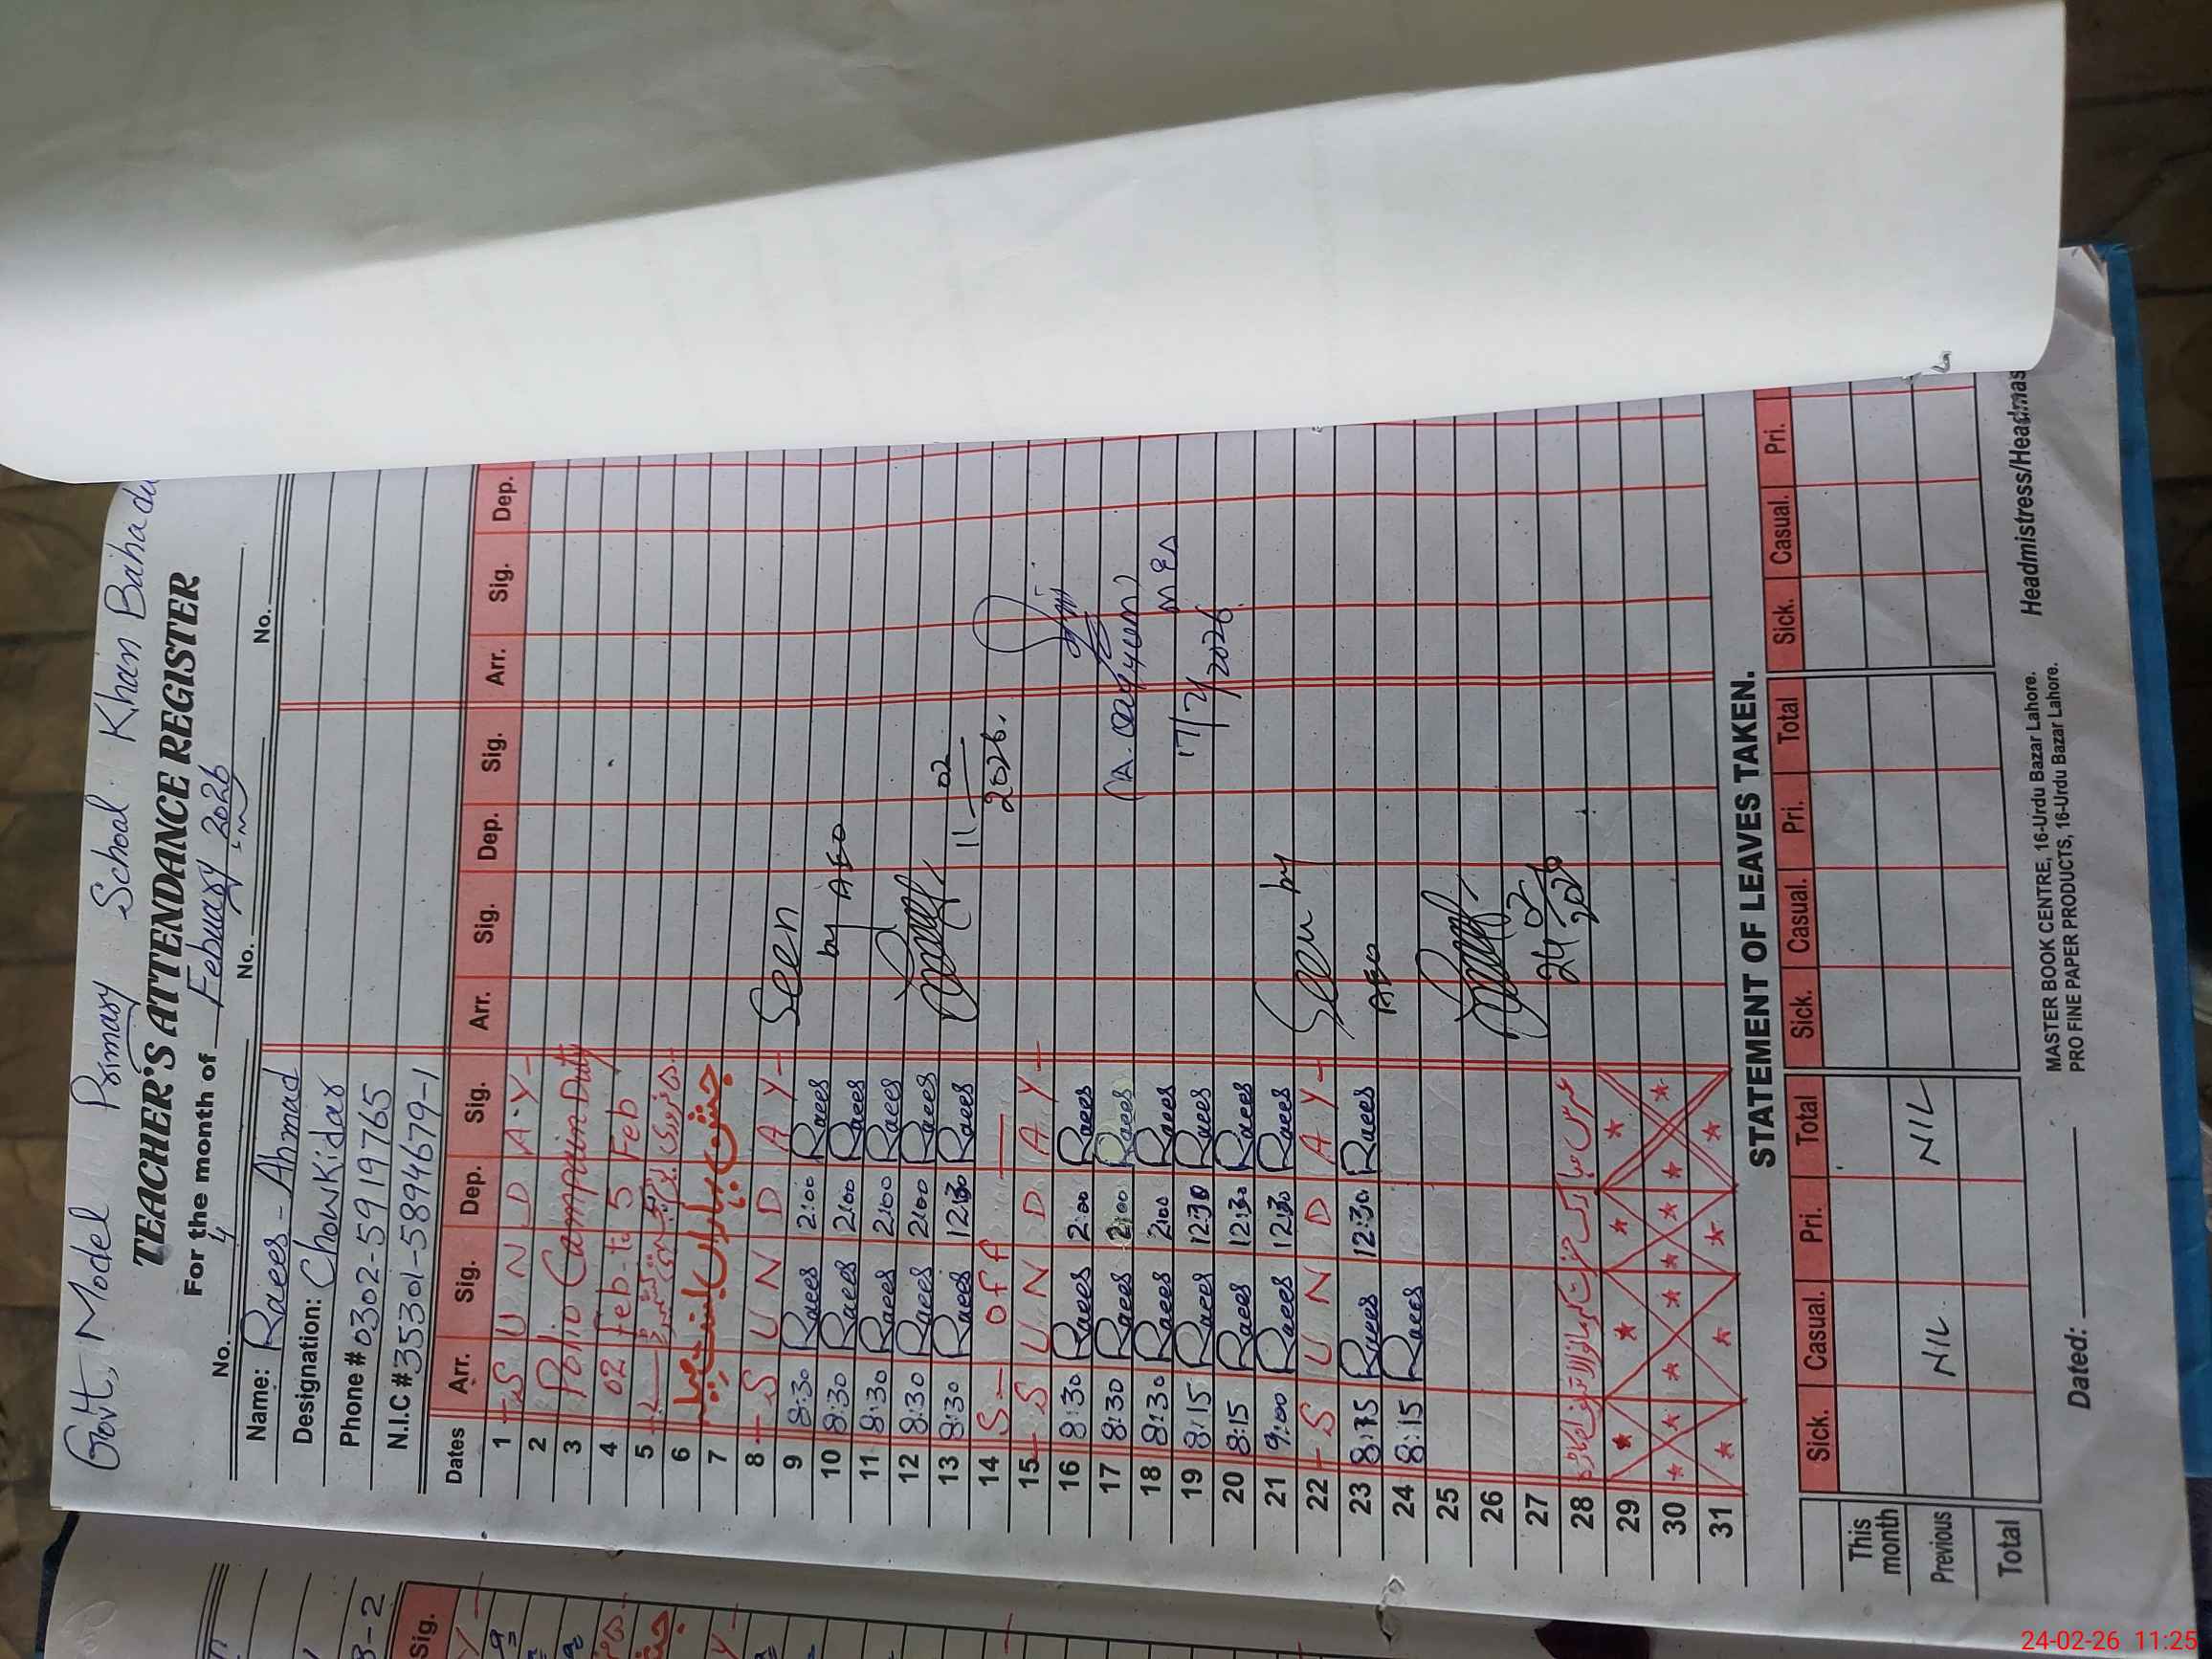 Govt, Model Primary School Khan Bahadu
TEACHER'S ATTENDANCE REGISTER
For the month of Febuary 2026
No. 4 No. No.
Name: Raees - Ahmad
Designation: ChowKidar
Phone # 0302-5919765
N.I.C # 35301-5894679-1
Dates Arr. Sig. Dep. Sig. Arr. Sig. Dep. Sig. Arr. Sig. Dep.
1 S U N D A Y
2
3 Polio Campain Duty
4 02 Feb to 5 Feb
5
6
7
8 S U N D A Y
9 8:30 Raees 2:00 Raees Seen
10 8:30 Raees 2:00 Raees by AEO
11 8:30 Raees 2:00 Raees
12 8:30 Raees 2:00 Raees
13 8:30 Raees 12:30 Raees 11 02
14 S - off 2026.
15 S U N D A Y
16 8:30 Raees 2:00 Raees
17 8:30 Raees 2:00 Raees
18 8:30 Raees 2:00 Raees MEA
19 8:15 Raees 12:30 Raees 17/2/2026
20 8:15 Raees 12:30 Raees
21 9:00 Raees 12:30 Raees Seen by
22 S U N D A Y
23 8:15 Raees 12:30 Raees AEO
24 8:15 Raees
25
26
27 24 02
28 2026
29
30
31
STATEMENT OF LEAVES TAKEN.
Sick. Casual. Pri. Total Sick. Casual. Pri. Total Sick. Casual. Pri.
This month
Previous NIL NIL
Total
MASTER BOOK CENTRE, 16-Urdu Bazar Lahore.
PRO FINE PAPER PRODUCTS, 16-Urdu Bazar Lahore.
Dated: Headmistress/Headmas
Sig.
24-02-26 11:25